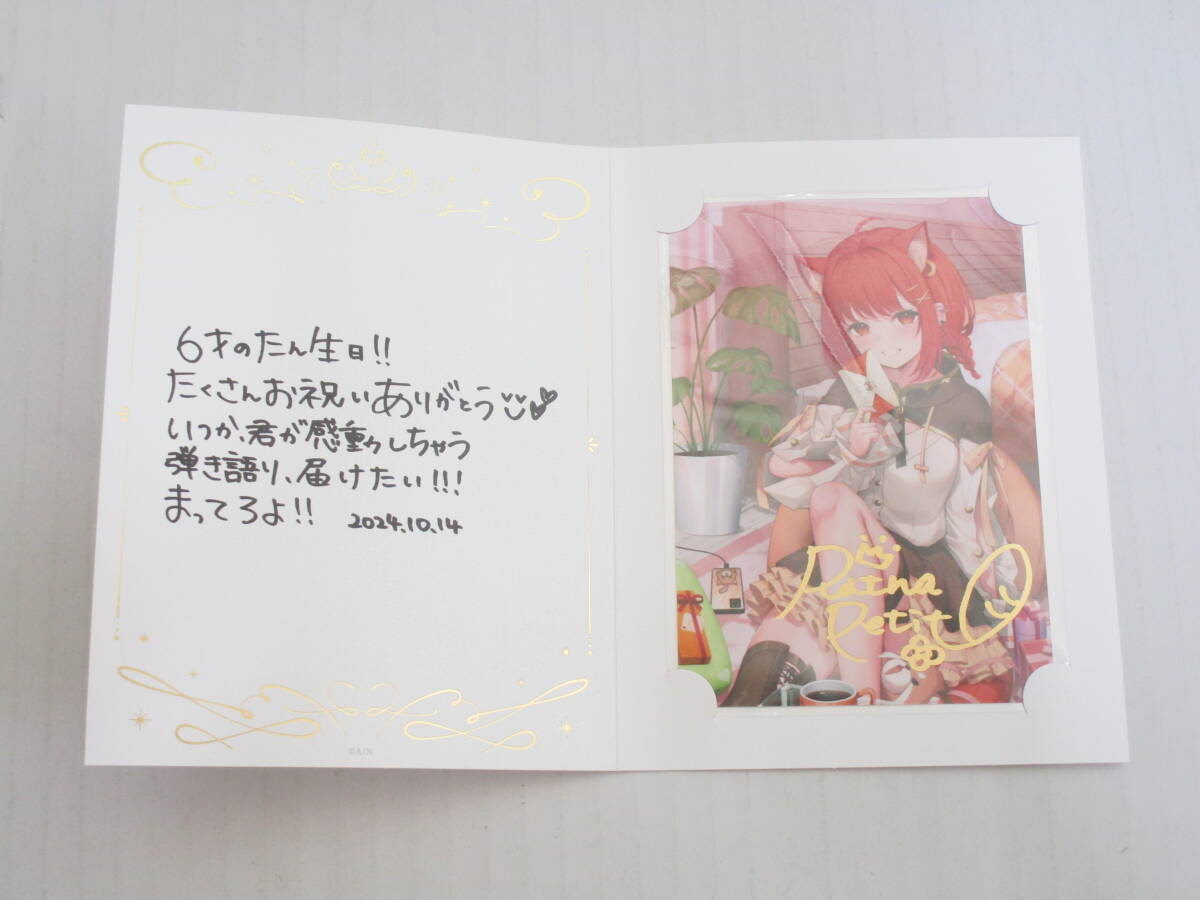 6才のたん生日!!
たくさんお祝いありがとう
いつか、君が感動しちゃう
弾き語り、届けたい!!!
まってろよ!! 2024.10.14
Ratna
Petit